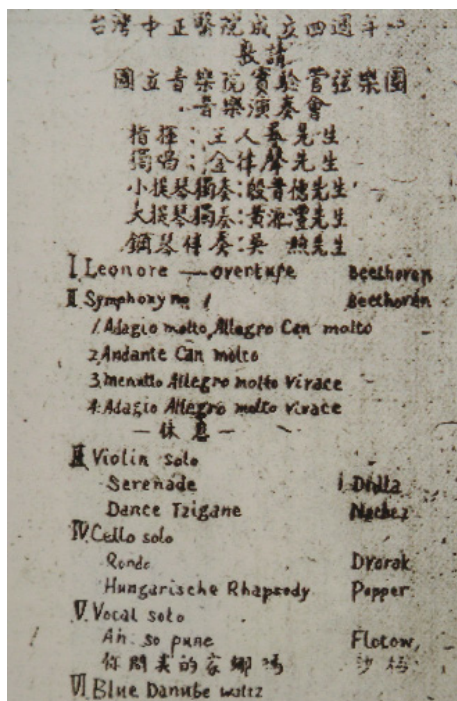 台灣中正醫院成立四週年
敦請
國立音樂院實驗管弦樂團
音樂演奏會
指揮：王人藝先生
獨唱：金律聲先生
小提琴獨奏：殷晋德先生
大提琴獨奏：黃源澧先生
鋼琴伴奏：吳 煦先生
I Leonore — overture Beethoven
II Symphoxy no 1 Beethoven
1. Adagio molto, Allegro Can molto
2. Andante Can molto
3. menutto Allegro molto Vivace
4. Adagio Allegro molto vivace
— 休息 —
III Violin solo
Serenade Didla
Dance Tzigane Nachez
IV. Cello solo
Rondo Dvorak
Hungarische Rhapsody Popper
V. Vocal solo
Ah so pune Flotow,
你問我的家鄉嗎 沙梅
VI Blue Danube waltz